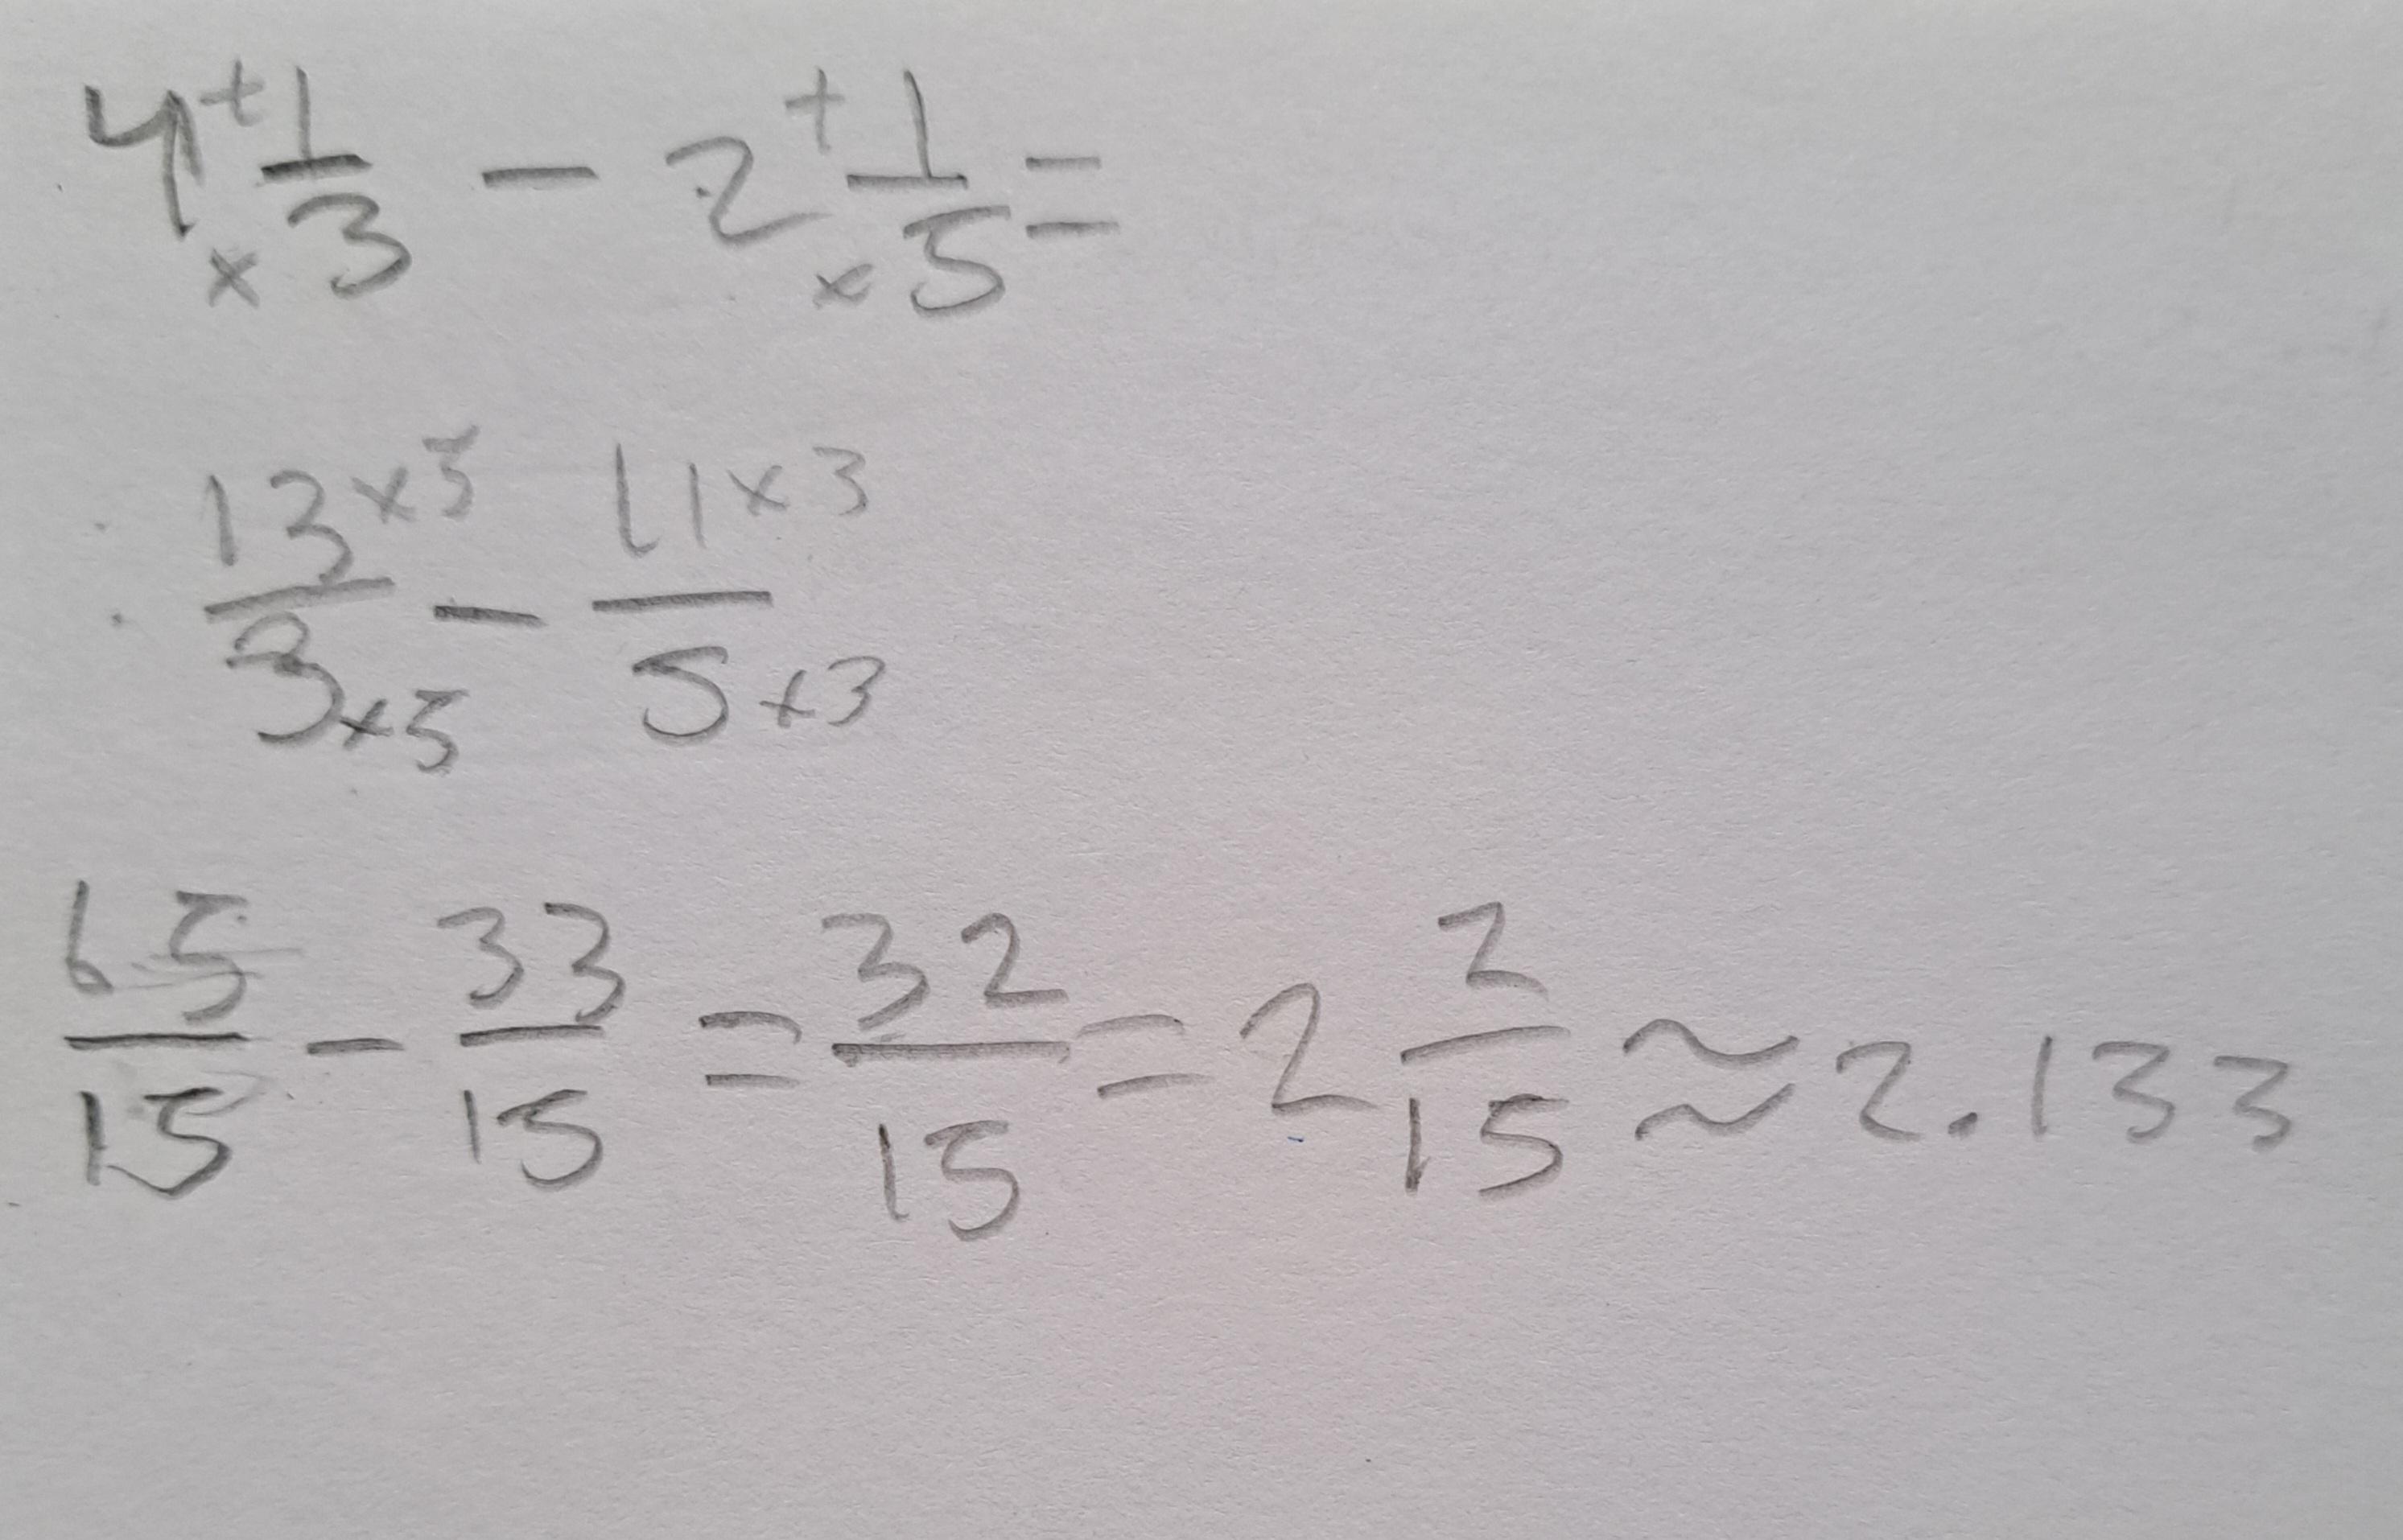 4 + 1/3 × - 2 + 1/5 × =
13 × 5 / 3 × 5 - 11 × 3 / 5 × 3
65/15 - 33/15 = 32/15 = 2 2/15 ≈ 2.133